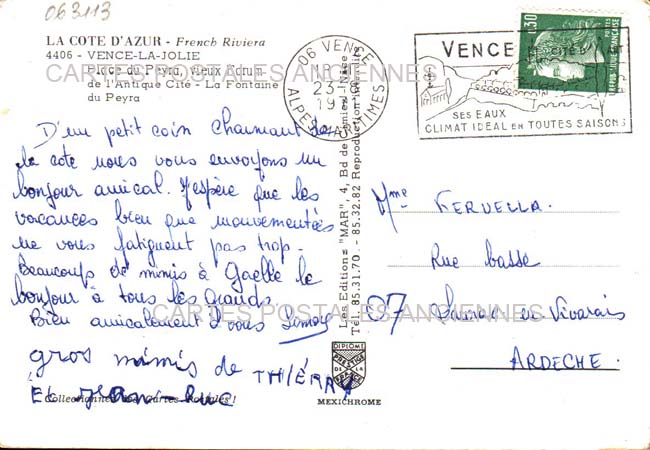 063113
LA COTE D'AZUR - French Riviera
4406 - VENCE-LA-JOLIE
Place du Peyra, vieux Forum
de l'Antique Cité - La Fontaine
du Peyra
CARTES POSTALES ANCIENNES
06 VENCE
23-
19
ALPES MARITIMES
VENCE
CITÉ D'ART
SES EAUX
CLIMAT IDEAL EN TOUTES SAISONS
0.30
POSTES
REPUBLIQUE FRANÇAISE
D'un petit coin charmant de
la côte nous vous envoyons un
bonjour amical. J'espère que les
vacances bien que mouvementées
ne vous fatiguent pas trop.
Beaucoup de mimis à Gaelle le
bonjour à tous les grands.
Bien amicalement à vous Simone
gros mimis de THIÉRRY
Et Jean-Luc
Collectionnez les Cartes Postales !
Les Editions "MAR", 4, Bd de Cimiez - Nice
Tél. 85.31.70 - 85.32.82 Reproduction interdite
DIPLOME
PRESTIGE
DE LA
FRANCE
MEXICHROME
Mme FERVELLA.
Rue basse
07 en Vivarais
ARDECHE.
CARTES POSTALES ANCIENNES